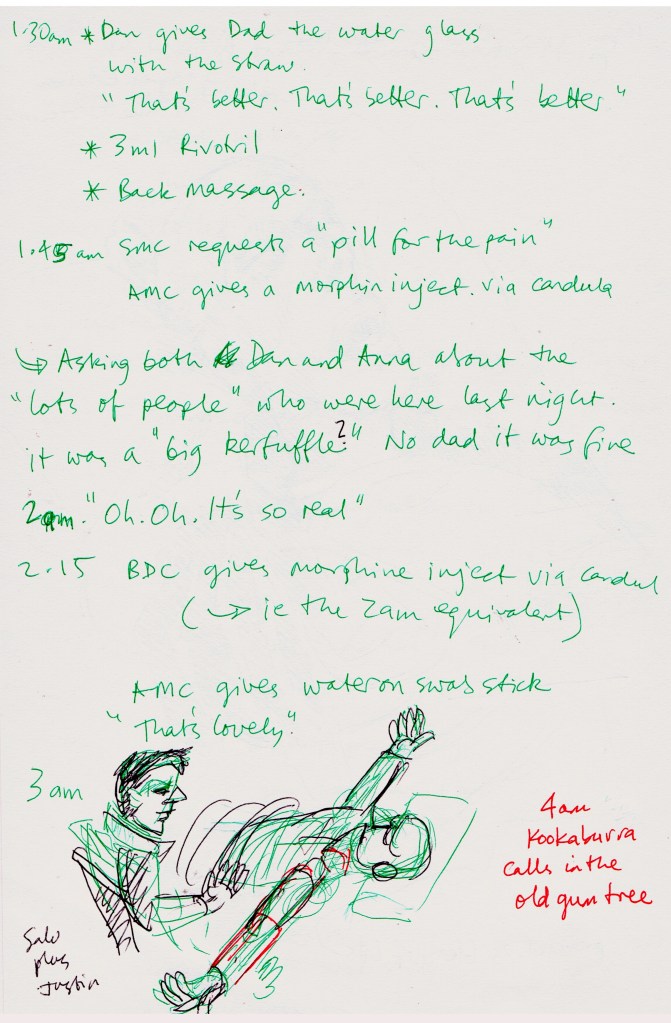 1.30am * Dan gives Dad the water glass
with the straw.
"That's better. That's better. That's better"
* 3ml Rivotril
* Back massage.
1.45am SMC requests a "pill for the pain"
AMC gives a morphin inject. via candula
↳ Asking both Dan and Anna about the
"lots of people" who were here last night.
it was a "big kerfuffle?" No dad it was fine
2am. "Oh. Oh. It's so real"
2.15 BDC gives morphine inject via candul
(↳ ie the 2am equivalent)
AMC gives water on swab stick
"That's lovely."
3am
4am
Kookaburra
calls in the
old gum tree
plus
Justin